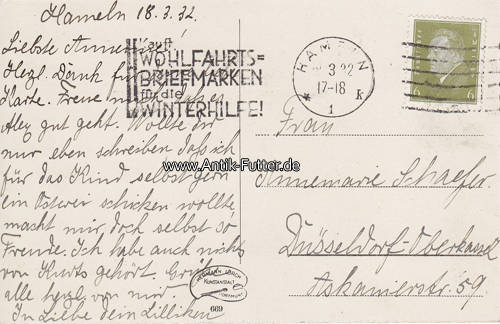 Hameln 18.3.32.
Liebste Annem
Herzl. Dank für
Karte. Freue mich
Alex gut geht. Wollte dir
nur eben schreiben daß ich
für das Kind selbst gern
ein Osterei schicken wollte
macht mir doch selbst so
Freude. Ich habe auch nichts
von Kurts gehört. Grüße
alle herzl. von mir
In Liebe dein Lilliken
Kauft
WOHLFAHRTS=
BRIEFMARKEN
für die
WINTERHILFE!
HAMELN
3 32
17-18
* 1 k
6 6
www.Antik-Futter.de
Frau
Annemarie Schaefer
Düsseldorf-Oberkassel
Askanierstr. 59
KUNSTANSTALT
669